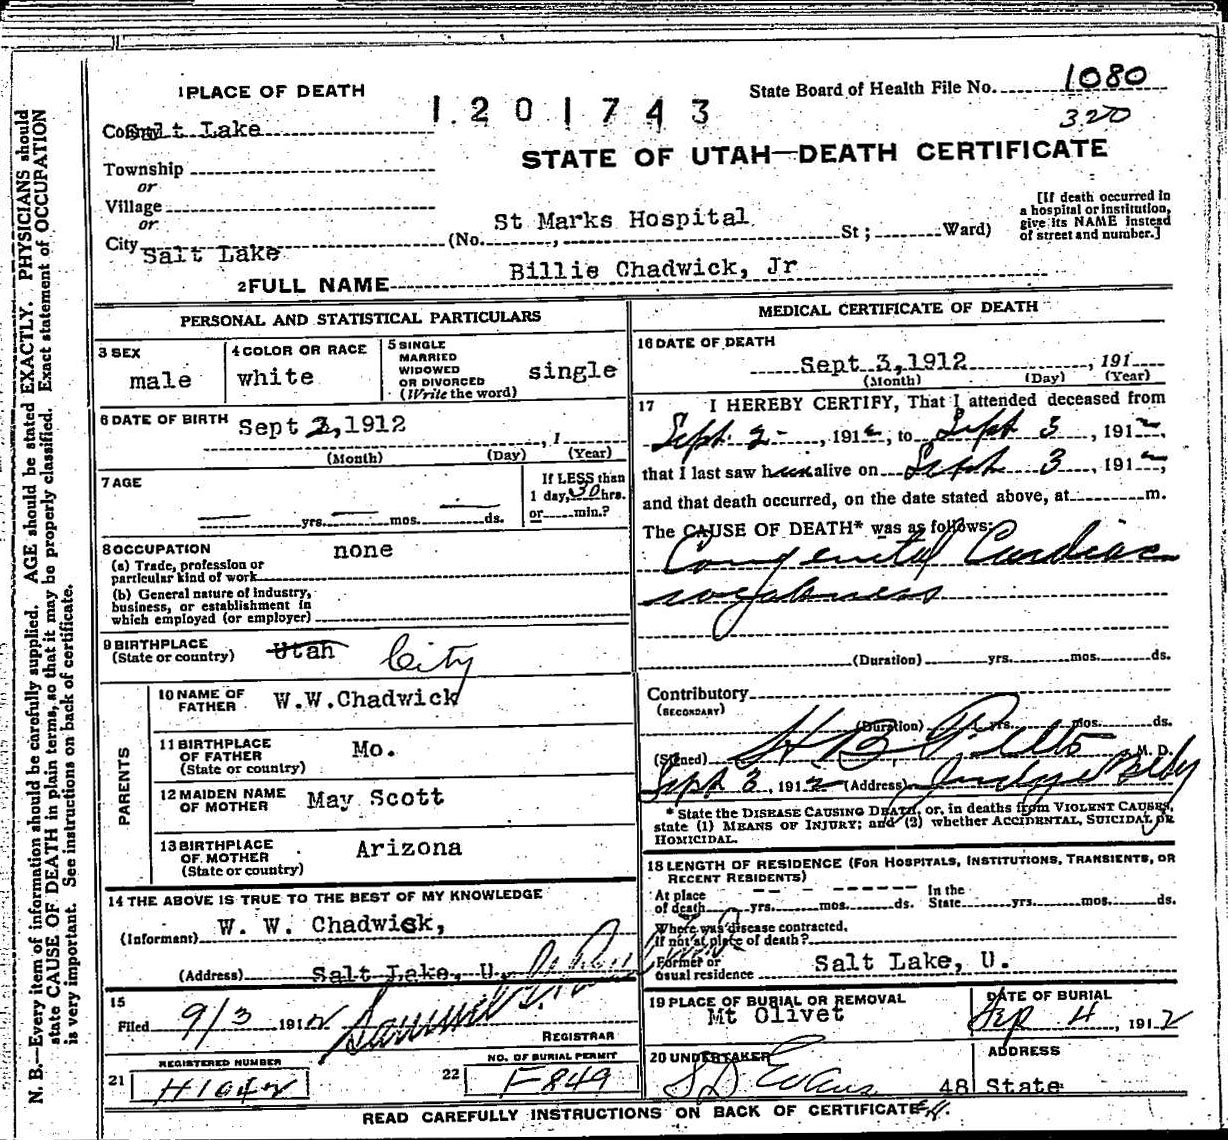 1 PLACE OF DEATH
State Board of Health File No. 1080
1201743
320
County Salt Lake
STATE OF UTAH—DEATH CERTIFICATE
Township
or
Village
or
City Salt Lake
(No. St Marks Hospital St; Ward)
[If death occurred in
a hospital or institution,
give its NAME instead
of street and number.]
2 FULL NAME Billie Chadwick, Jr
PERSONAL AND STATISTICAL PARTICULARS
3 SEX
male
4 COLOR OR RACE
white
5 SINGLE
MARRIED
WIDOWED
OR DIVORCED
(Write the word)
single
6 DATE OF BIRTH Sept 2, 1912, 1
(Month) (Day) (Year)
7 AGE
yrs. mos. ds.
If LESS than
1 day, 30 hrs.
or min.?
8 OCCUPATION none
(a) Trade, profession or
particular kind of work
(b) General nature of industry,
business, or establishment in
which employed (or employer)
9 BIRTHPLACE
(State or country) Utah City
PARENTS
10 NAME OF
FATHER W.W.Chadwick
11 BIRTHPLACE
OF FATHER
(State or country) Mo.
12 MAIDEN NAME
OF MOTHER May Scott
13 BIRTHPLACE
OF MOTHER
(State or country) Arizona
14 THE ABOVE IS TRUE TO THE BEST OF MY KNOWLEDGE
(Informant) W. W. Chadwick,
(Address) Salt Lake, U.
15
Filed 9/3 1912
REGISTRAR
REGISTERED NUMBER
21 H1042
NO. OF BURIAL PERMIT
22 F849
MEDICAL CERTIFICATE OF DEATH
16 DATE OF DEATH
Sept 3, 1912, 191
(Month) (Day) (Year)
17 I HEREBY CERTIFY, That I attended deceased from
Sept. 2, 1912, to Sept 3, 1912,
that I last saw him alive on Sept 3, 1912,
and that death occurred, on the date stated above, at m.
The CAUSE OF DEATH* was as follows:
Congenital Cardiac
weakness
(Duration) yrs. mos. ds.
Contributory
(SECONDARY)
(Duration) yrs. mos. ds.
(Signed) H B M. D.
Sept 3, 1912 (Address) Judge Bldg
* State the DISEASE CAUSING DEATH, or, in deaths from VIOLENT CAUSES,
state (1) MEANS OF INJURY; and (2) whether ACCIDENTAL, SUICIDAL OR
HOMICIDAL.
18 LENGTH OF RESIDENCE (FOR HOSPITALS, INSTITUTIONS, TRANSIENTS, OR
RECENT RESIDENTS)
At place In the
of death yrs. mos. ds. State yrs. mos. ds.
Where was disease contracted,
If not at place of death?
Former or
usual residence Salt Lake, U.
19 PLACE OF BURIAL OR REMOVAL
Mt Olivet
DATE OF BURIAL
Sep 4, 1912
20 UNDERTAKER
S D Evans
ADDRESS
48 State
READ CAREFULLY INSTRUCTIONS ON BACK OF CERTIFICATE
N. B.—Every item of information should be carefully supplied. AGE should be stated EXACTLY. PHYSICIANS should
state CAUSE OF DEATH in plain terms, so that it may be properly classified. Exact statement of OCCUPATION
is very important. See instructions on back of certificate.